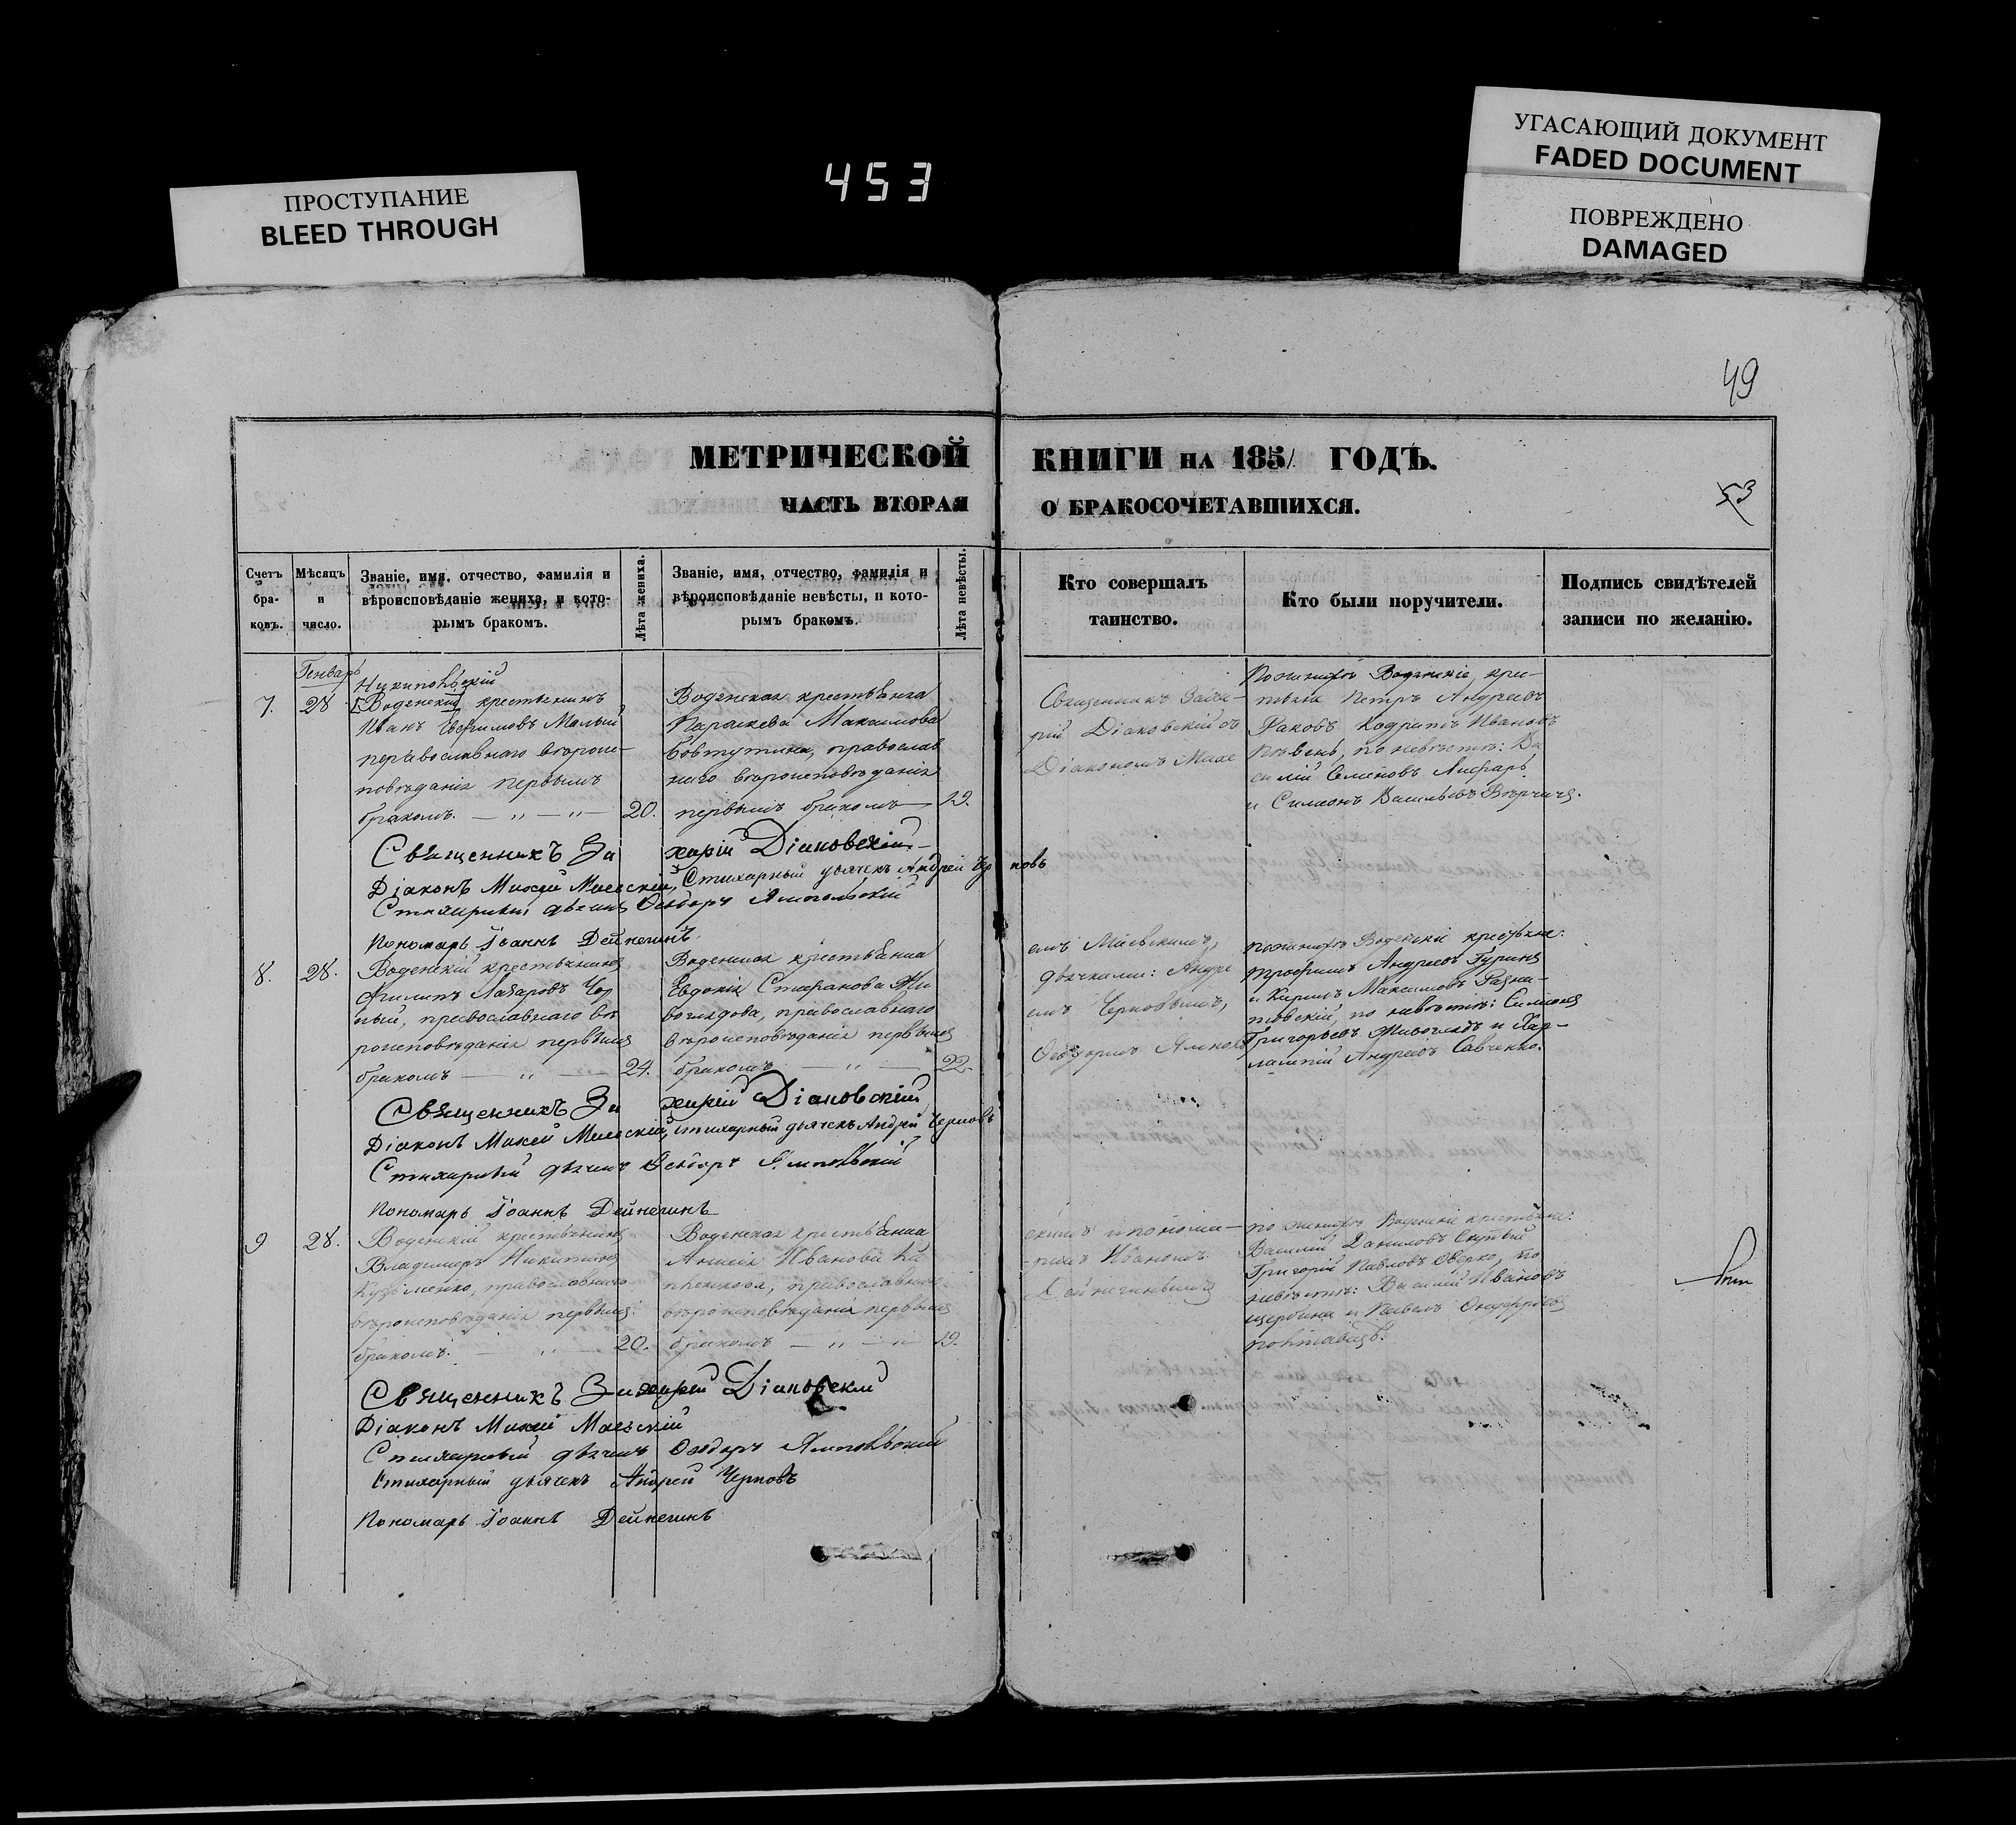 ПРОСТУПАНИЕ
BLEED THROUGH
453
УГАСАЮЩИЙ ДОКУМЕНТ
FADED DOCUMENT
ПОВРЕЖДЕНО
DAMAGED
49
МЕТРИЧЕСКОЙ КНИГИ НА 1851 ГОДЪ.
ЧАСТЬ ВТОРАЯ О БРАКОСОЧЕТАВШИХСЯ.
53
Счетъ бра-ковъ.
Мѣсяцъ и число.
Званіе, имя, отчество, фамилія и
вѣроисповѣданіе жениха, и кото-
рымъ бракомъ.
Лѣта жениха.
Званіе, имя, отчество, фамилія и
вѣроисповѣданіе невѣсты, и кото-
рымъ бракомъ.
Лѣта невѣсты.
Кто совершалъ
таинство.
Кто были поручители.
Подпись свидѣтелей
записи по желанію.
Генварь
7.
28
Никипольскій
Воденскій крестьянинъ
Иванъ Евфимовъ Малый
православнаго вѣроис-
повѣданія первымъ
бракомъ.
20.
Воденская крестьянка
Параскева Максимова
Бовтутина, православ
наго вѣроисповѣданія
первымъ бракомъ
19.
Священникъ Заха-
рій Діаковскій съ
Діакономъ Михе
по женихѣ Воденскіе, кре-
стьяне Петръ Андреевъ
Иванъ
по невѣстѣ: Ва
силій Семеновъ
и Симеонъ Васильевъ
Священникъ Захарій Діаковскій
Діаконъ Михей Маевскій, Стихарный дьячекъ Андрей Черновъ
Стихарный дьячекъ Ѳеодоръ Ямпольскій
Пономарь Іоаннъ Дейнегинъ
8.
28.
Воденскій крестьянинъ
Филипъ Лазаровъ Чор
ный, православнаго вѣ
роисповѣданія первымъ
бракомъ
24.
Воденская крестьянка
Евдокія Стефанова Жи
воглядова, православнаго
вѣроисповѣданія первымъ
бракомъ
22.
емъ Маевскимъ,
дьячками: Андре
емъ Черновымъ,
Ѳеодоромъ Ямполь
по женихѣ Воденскіе крестьяне:
Трофимъ Андреевъ Гуринъ
и Кирилъ Максимовъ
по невѣстѣ: Симеонъ
Григорьевъ Живоглядъ и Хар-
лампій Андреевъ Савченко.
Священникъ Захарій Діаковскій
Діаконъ Михей Маевскій, стихарный дьячекъ Андрей Черновъ
Стихарный дьячекъ Ѳеодоръ Ямпольскій
Пономарь Іоаннъ Дейнегинъ
9
28.
Воденскій крестьянинъ
Владимиръ Никитинъ
Кузьменко, православнаго
вѣроисповѣданія первымъ
бракомъ.
20.
Воденская крестьянка
Анисія Иванова
православнаго
вѣроисповѣданія первымъ
бракомъ
19.
скимъ и понома-
ремъ Иваномъ
Дейнегинымъ
по женихѣ Воденскіе крестьяне:
Василій Даниловъ
Григорій Павловъ по
невѣстѣ: Василій Ивановъ
Щербина и Павелъ Онуфріевъ
Священникъ Захарій Діаковскій
Діаконъ Михей Маевскій
Стихарный дьячекъ Ѳеодоръ Ямпольскій
Стихарный дьячекъ Андрей Черновъ
Пономарь Іоаннъ Дейнегинъ